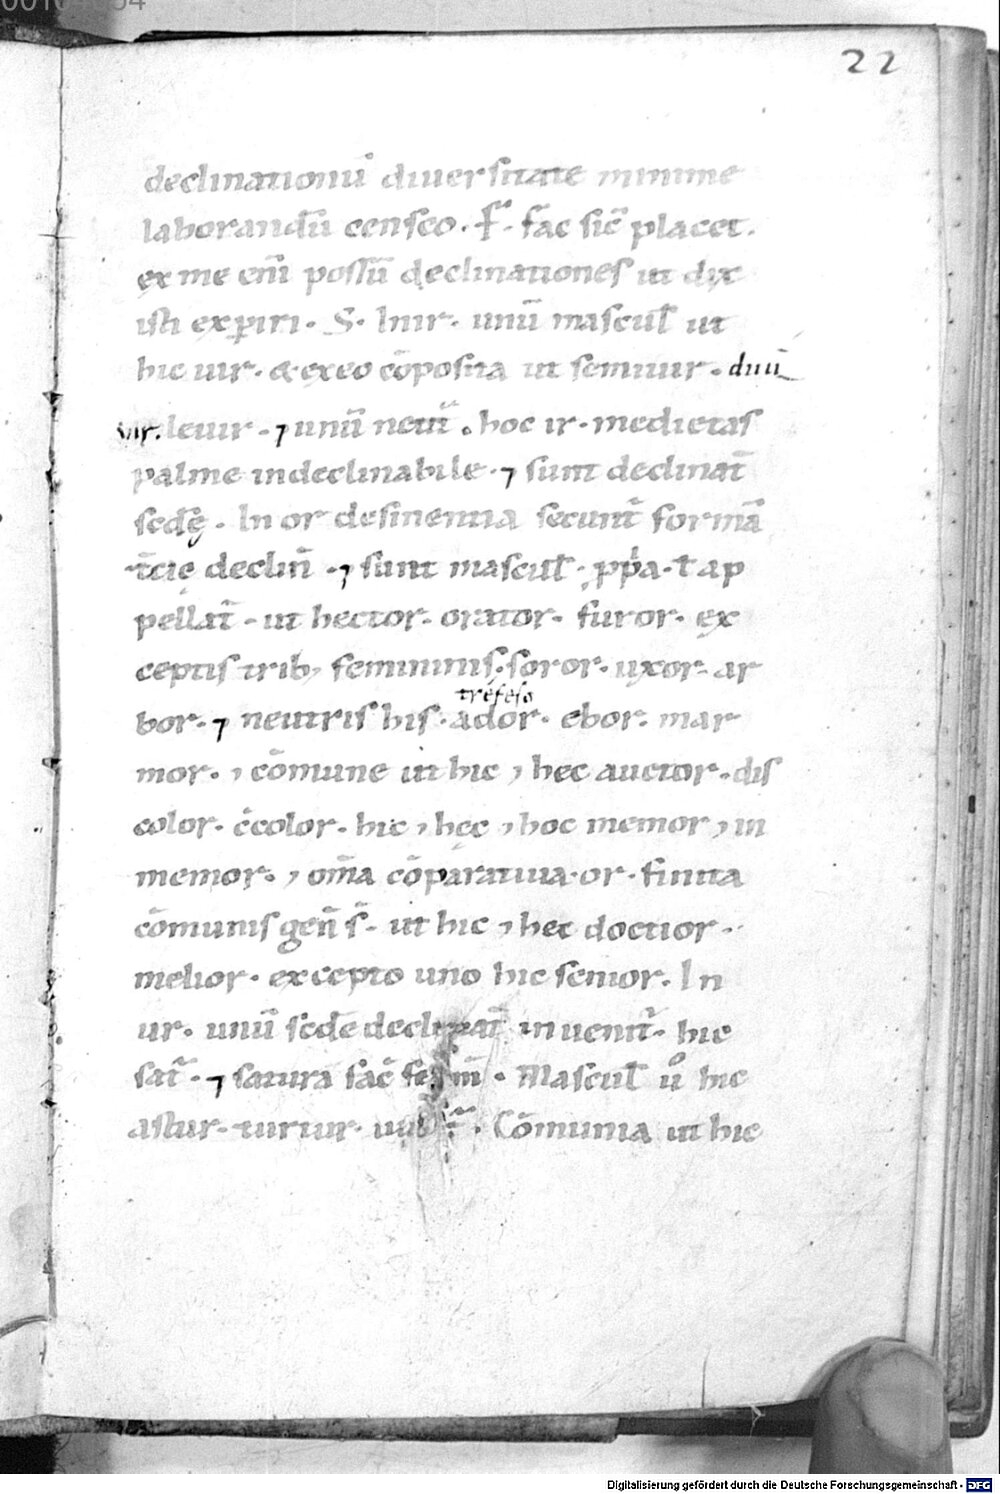 22
declinationũ diuersitate minime
laborandũ censeo. F. fac sic̃ placet.
ex me eni̅ possũ declinationes ut dix
isti exꝑiri. S. In ir. unũ mascul̅ ut
hic uir. & ex eo cõposita ut semiuir. duũ
vir. leuir. ⁊ unũ neut̃. hoc ir. medietas
palme indeclinabile. ⁊ sunt declinat̃
scdę. In or desinentia secunt̃ formã
t̃cię declin̅. ⁊ sunt mascul̅. ꝓpͥa. ł ap
pellat̃. ut hector. orator. furor. ex
ceptis trib; femininis. soror. uxor. ar
trefeso
bor. ⁊ neutris his. ador. ebor. mar
mor. ⁊ cõmune ut hic ⁊ hec auctor. dis
color. c̃color. hic ⁊ hęc ⁊ hoc memor ⁊ in
memor. ⁊ om̃a cõparatiua. or. finita
cõmunis gen̅ s̃. ut hic ⁊ hec doctior.
melior. excepto uno hic senior. In
ur. unũ scdę declinat̃ inuenit̃. hic
sat̃. ⁊ satura fac̃ fem̅. Mascul̅ uͦ hic
astur. turtur. Cõmunia ut hic
Digitalisierung gefördert durch die Deutsche Forschungsgemeinschaft - DFG